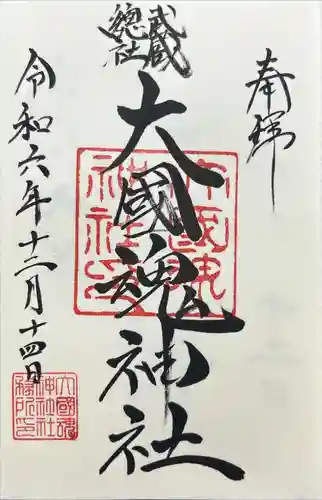 奉拝
武蔵
總社
大國魂神社
令和六年十二月十四日
大國魂
神社社
務所印